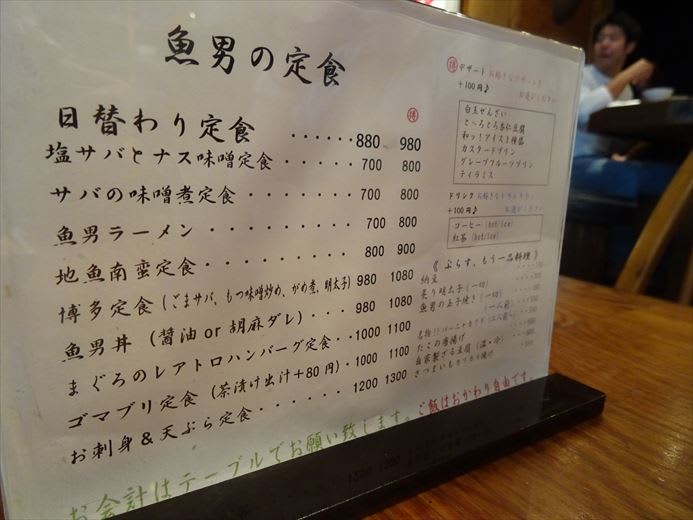 魚男の定食
得
日替わり定食 ‥‥‥880 980
塩サバとナス味噌定食‥‥‥ 700 800
サバの味噌煮定食‥‥‥ 700 800
魚男ラーメン ‥‥‥ 700 800
地魚南蛮定食‥‥‥ 800 900
博多定食(ごまサバ、もつ味噌炒め、がめ煮、明太子) 980 1080
魚男丼 (醤油 or 胡麻ダレ)‥‥‥ 980 1080
まぐろのレアトロハンバーグ定食‥‥ 1000 1100
ゴマブリ定食 (茶漬け出汁+80円)・1000 1100
お刺身&天ぷら定食‥‥‥ 1200 1300
お会計はテーブルでお願い致します。ご飯はおかわり自由です。
得 デザート
+100円♪
白玉ぜんざい
と~ろとろ杏仁豆腐
和っ!アイス1種盛
カスタードプリン
グレープフルーツプリン
ティラミス
ドリンク
+100円♪
コーヒー (hot/ice)
紅茶 (hot/ice)
《 ぷらす、もう一品料理 》
納豆
炙り明太子 (一切)
魚男の玉子焼き (一切)
(一人前)
たこの唐揚げ
自家製ざる豆腐 (温・冷)